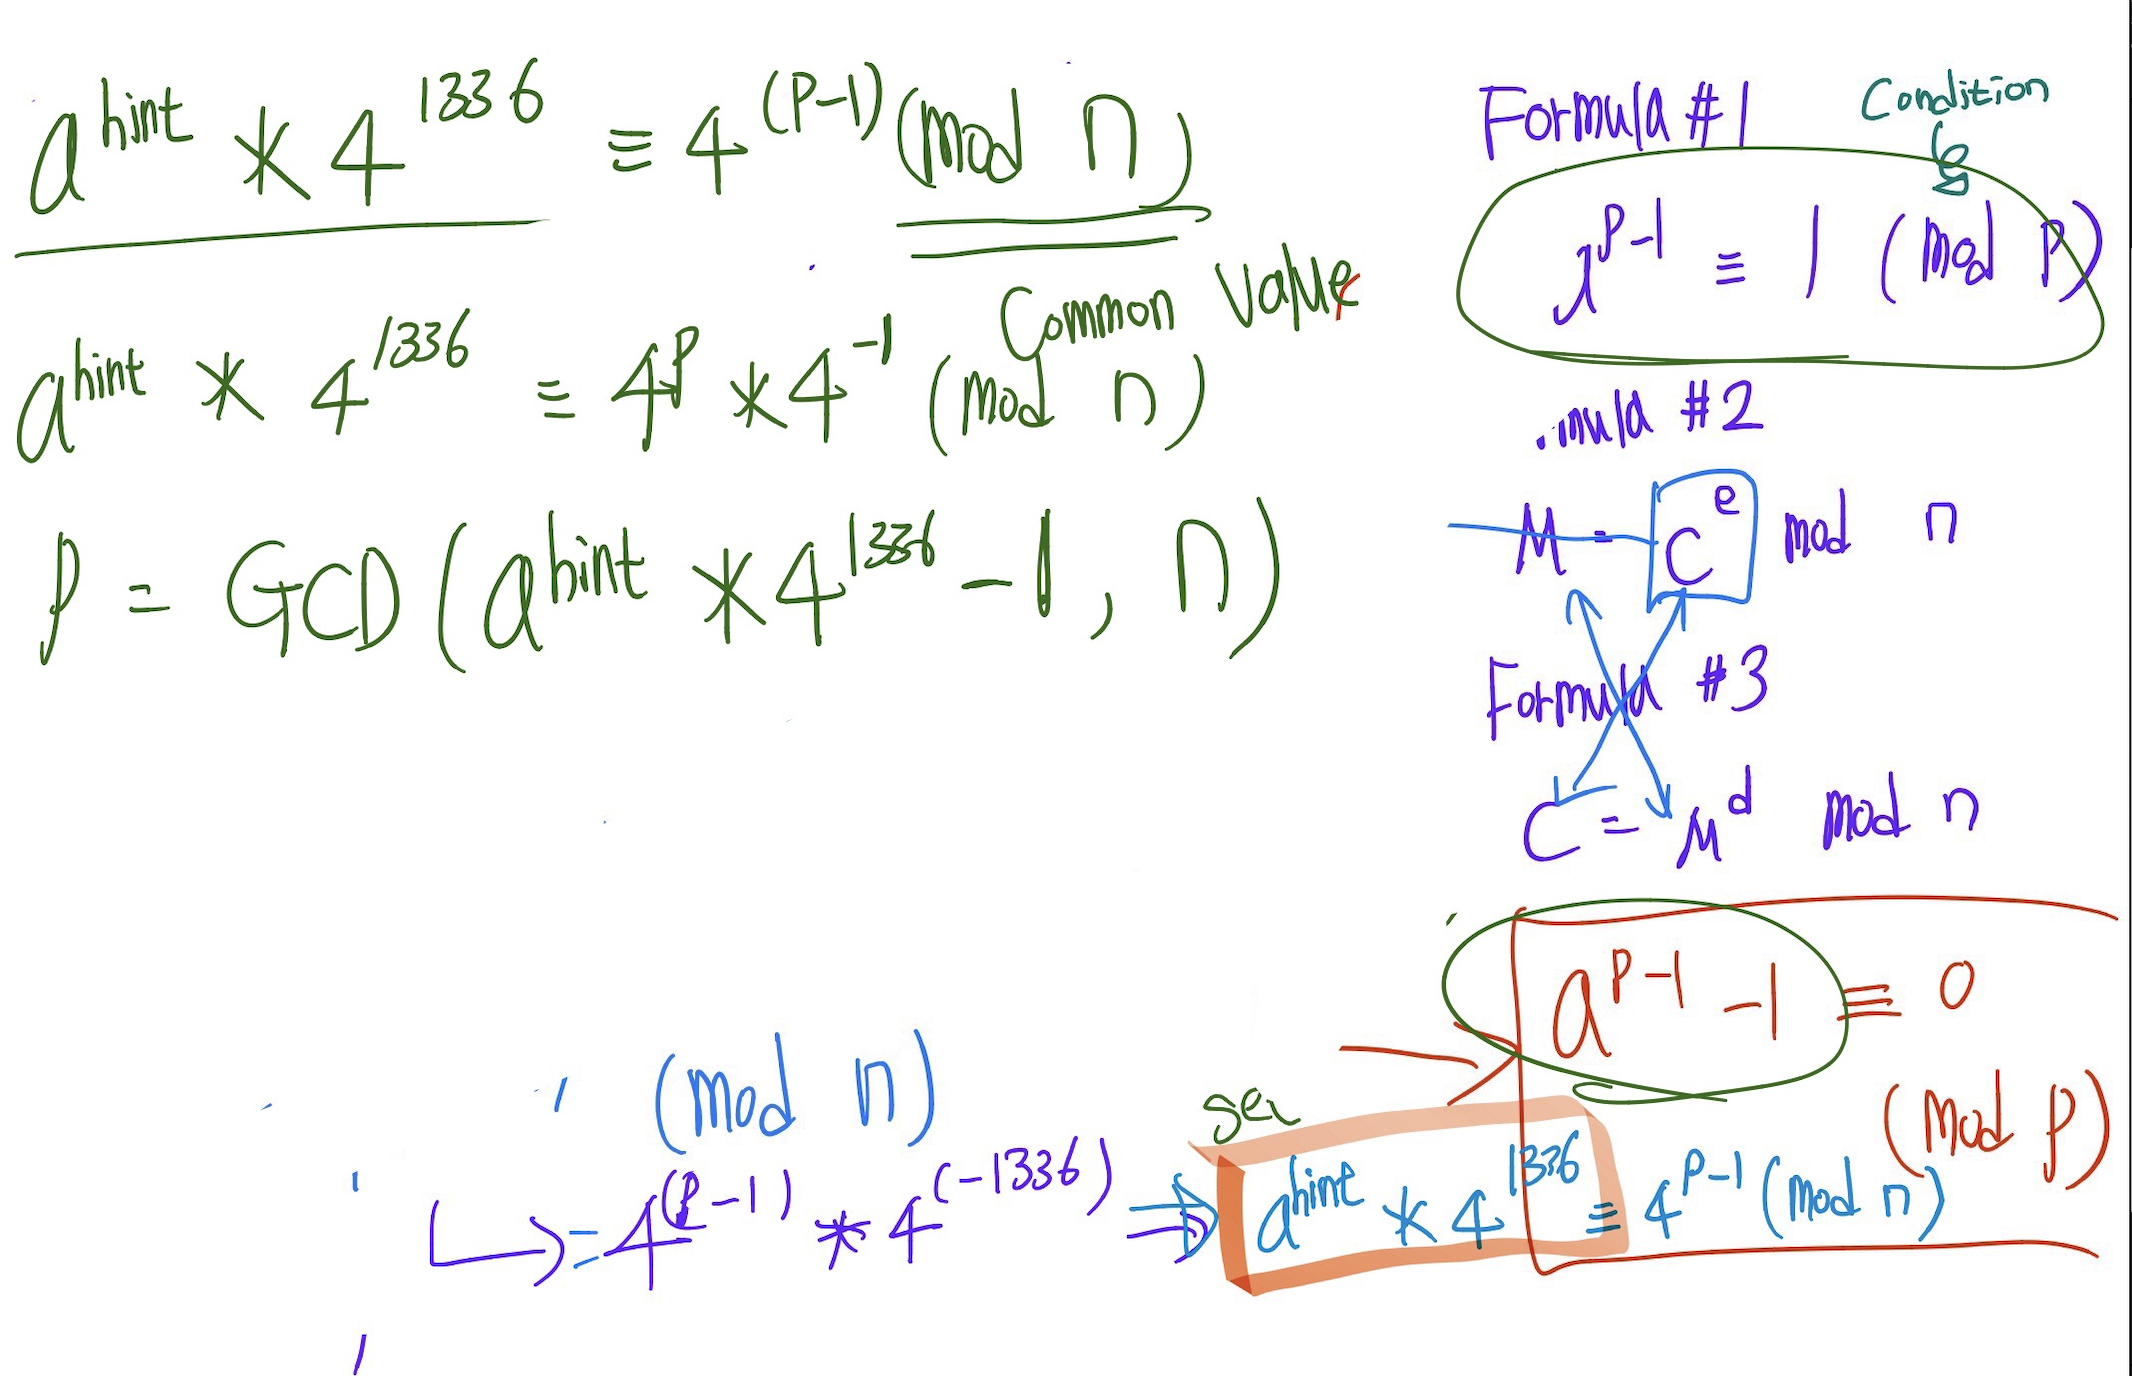 a^hint * 4^1336 ≡ 4^(P-1) (mod n)
Common Value
a^hint * 4^1336 ≡ 4^P * 4^-1 (mod n)
P = GCD(a^hint * 4^1336 - 1, n)
Formula #1
Condition
x^P-1 ≡ 1 (mod P)
mula #2
M = C^e mod n
Formula #3
C = M^d mod n
a^P-1 - 1 ≡ 0
(mod P)
(mod n)
= 4^(P-1) * 4^(-1336)
a^hint * 4^1336 ≡ 4^P-1 (mod n)